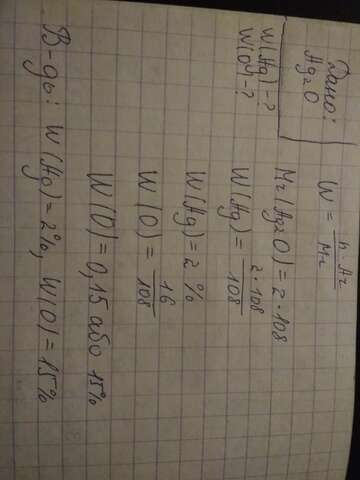 Дано:
Ag₂O
W(Ag)-?
W(O)-?
W = n·Ar/Mr
Mr(Ag₂O)=2·108
W(Ag)= 2·108/108
W(Ag)=2%
W(O)= 16/108
W(O)=0,15 або 15%
В-дь: W(Ag)=2%, W(O)=15%